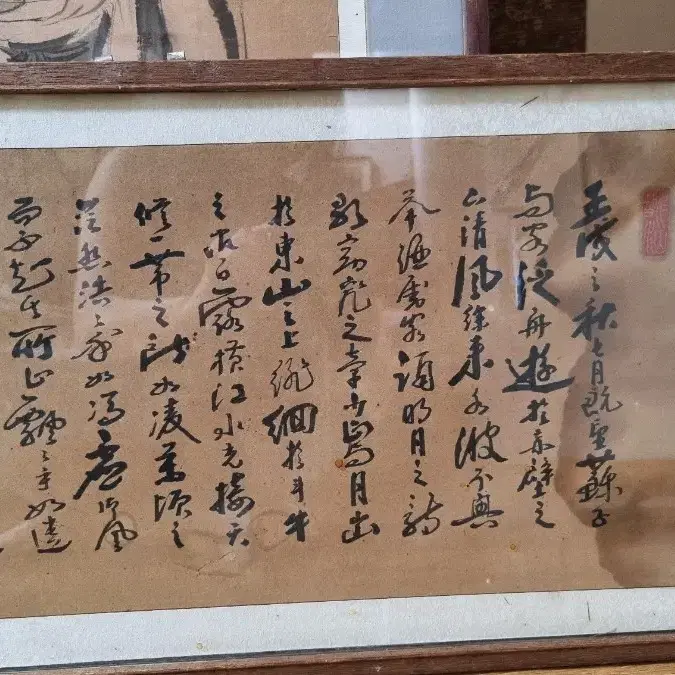 壬戌之秋七月既望蘇子
与客泛舟遊於赤壁之
下清風徐來水波不興
舉酒屬客誦明月之詩
歌窈窕之章少焉月出
於東山之上徘徊於斗牛
之间白露橫江水光接天
縱一葦之所如凌萬頃之
茫然浩〻乎如馮虛御風
而不知其所止飄〻乎如遺